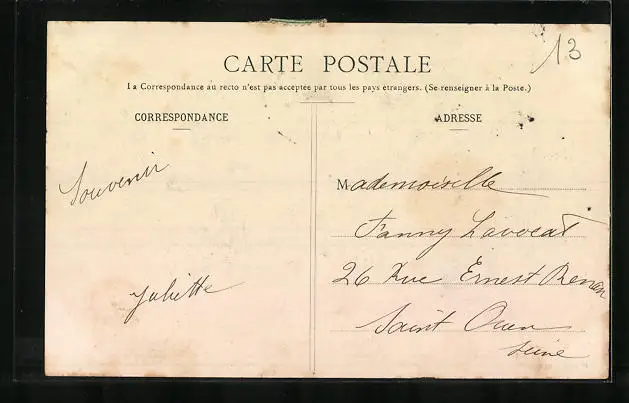 13
CARTE POSTALE
La Correspondance au recto n'est pas acceptée par tous les pays étrangers. (Se renseigner à la Poste.)
CORRESPONDANCE
Souvenir
Juliette
ADRESSE
Mademoiselle
Fanny Lavocat
26 Rue Ernest Renan
Saint Ouen
Seine